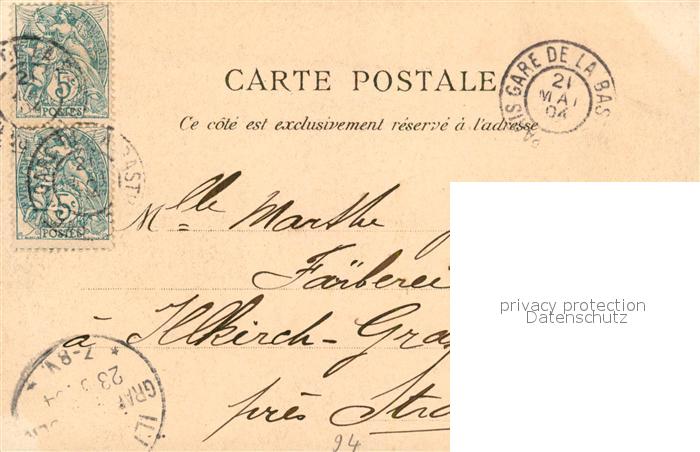 5c
POSTES
5c
POSTES
CARTE POSTALE
PARIS GARE DE LA BAS
21
MAI
04
Ce côté est exclusivement réservé à l'adresse
Mlle Marthe
Färberei
à Illkirch-Graf
près Stra
privacy protection
Datenschutz
7-8V.
23
94